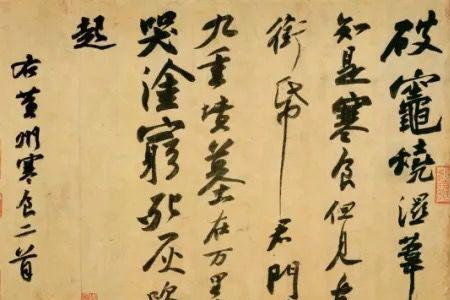 破竈燒濕葦
知是寒食但見烏
銜帋君門
九重墳墓在万里
哭塗窮死灰吹
起
右黃州寒食二首